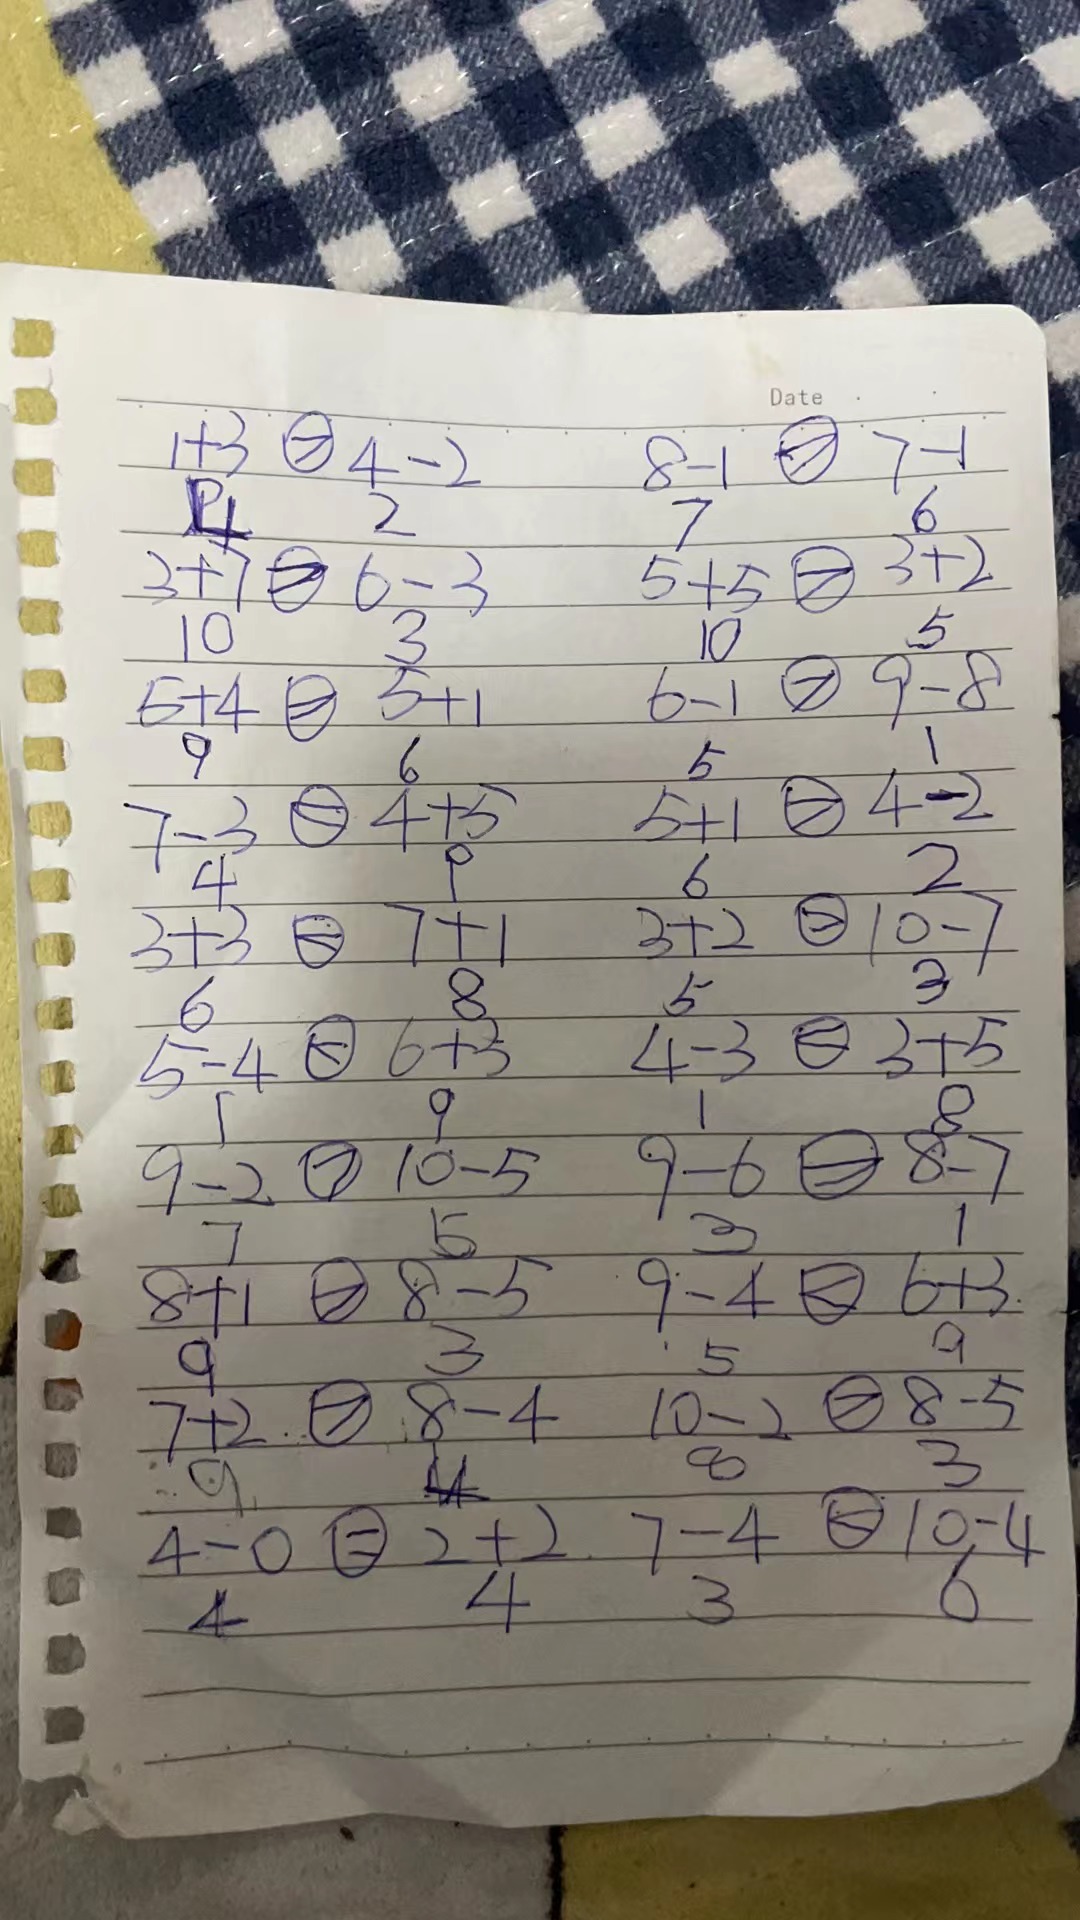 Date
1+3 > 4-2 8-1 > 7-1
4 2 7 6
3+7 > 6-3 5+5 > 3+2
10 3 10 5
5+4 > 5+1 6-1 > 9-8
9 6 5 1
7-3 < 4+5 5+1 > 4-2
4 9 6 2
3+3 < 7+1 3+2 > 10-7
6 8 5 3
5-4 < 6+3 4-3 < 3+5
1 9 1 8
9-2 > 10-5 9-6 > 8-7
7 5 3 1
8+1 > 8-5 9-4 < 6+3
9 3 5 9
7+2 > 8-4 10-2 > 8-5
9 4 8 3
4-0 = 2+2 7-4 < 10-4
4 4 3 6